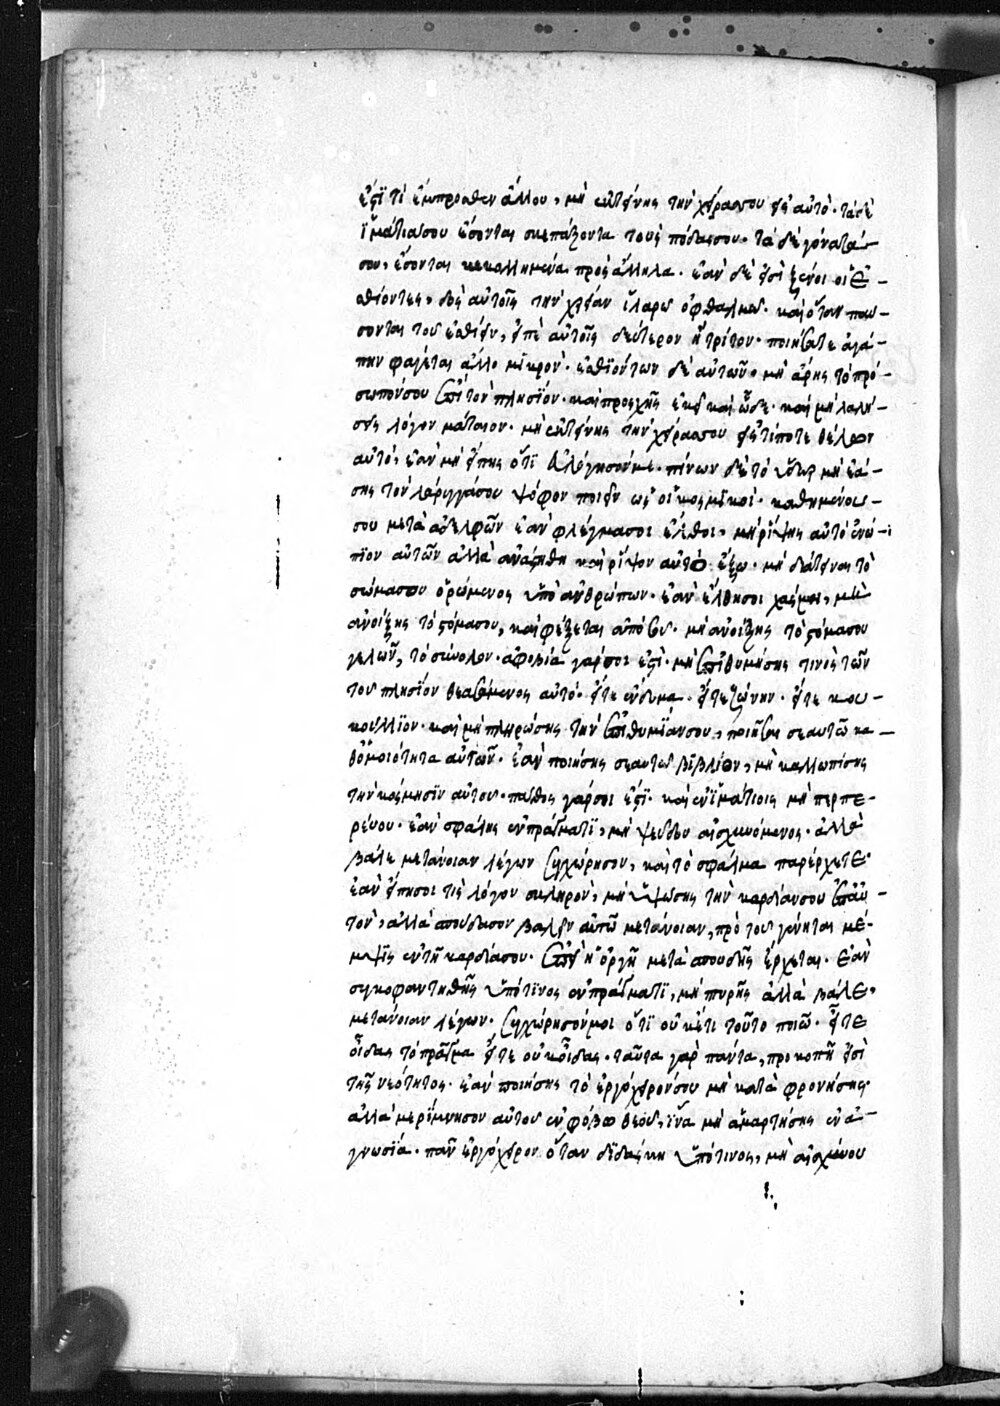 ἐστὶ τὶ ἔμπροσθεν ἄλλου, μὴ ἐκτείνης τὴν χεῖρασου εἰς αὐτό· τὰ δὲ
ἱμάτιασου ἔσονται σκεπάζοντα τοὺς πόδασσου· τὰ δὲ γόνατά
σου, ἔσονται κεκολλημένα πρὸς ἄλληλα· ἐὰν δὲ εἰσὶ ξένοι οἱ ἐ-
σθίοντες, δὸς αὐτοῖς τὴν χεῖραν ἱλαρῶ ὀφθαλμῶ· καὶ ὅταν παύ-
σονται τοῦ ἐσθίειν, εἰπὲ αὐτοῖς δεύτερον ἢ τρίτον· ποιήσατε ἀγά-
πην φαγέται ἄλλο μικρόν· ἐσθϊόντων δὲ αὐτῶν, μὴ ἄρης τὸ πρό-
σωπόνσου ἐπὶ τὸν πλησίον· καὶ προσχῆς ἐκεῖ καὶ ὧδε· καὶ μὴ λαλή-
σης λόγον μάταιον· μὴ ἐκτείνης τὴν χεῖρασου εἰς τίποτε θέλων
αὐτό, ἐὰν μὴ εἴπης ὅτι εὐλόγησόνμε· πίνων δὲ τὸ ὕδωρ μὴ ἐά-
σης τὸν λάρυγγάσου ψόφον ποιεῖν ὡς οἱ κοσμικοί· καθημένου
σου μετὰ ἀδελφῶν ἐὰν φλέγμασοι ἔλθοι, μὴ ρίψης αὐτὸ ἐνώ-
πϊον αὐτῶν ἀλλὰ ἀνάστηθι καὶ ρίψον αὐτὸ ἔξω· μὴ διατείναι τὸ
σώμασου ὁρώμενος ὑπὸ ἀνθρώπων· ἐὰν ἔλθησοι χάσμοι, μὴ
ἀνοίξης τὸ στόμασου, καὶ φεύξεται ἀπό σου· μὴ ἀνοίξης τὸ στόμασου
γελῶν, τὸ σύνολον· ἀφοβία γάρσοι ἐστί· μὴ ἐπιθυμήσης τινὸς τῶν
τοῦ πλησίον θεασάμενος αὐτό· εἴτε ἔνδυμα· εἴτε ζώνην· εἴτε κου-
κούλλϊον· καὶ μὴ πληρώσης τὴν ἐπιθυμίανσου, ποιῆσαι σεαυτῶ κα
θομοιότητα αὐτῶν· ἐὰν ποιήσης σεαυτῶ βιβλίον, μὴ καλλωπίσης
τὴν κόσμησϊν αὐτοῦ· πάθος γάρσοι ἐστί· καὶ ἐν ἱματίοις μὴ περπε-
ρεύου· ἐὰν σφάλης ἐν πράγματϊ, μὴ ψεύδου αἰσχυνόμενος· ἀλλὰ
βάλε μετάνοιαν λέγων συγχώρησον, καὶ τὸ σφάλμα παρέρχετε·
ἐὰν εἴπησοι τὶς λόγον σκληρόν, μὴ ὑψώσης τὴν καρδίανσου ἐπ' αὐ-
τόν, ἀλλὰ σπούδασον βαλεῖν αὐτῶ μετάνοιαν, πρὸ τοῦ γένηται μέ-
μψις ἐν τῆ καρδίασου· ἐπεὶ ἡ ὀργὴ μετὰ σπουδῆς ἔρχεται· ἐὰν
συκοφαντηθῆς ὑπότϊνος ἐν πράγματϊ, μὴ πυρῆς ἀλλὰ βάλε
μετάνοιαν λέγων· συγχώρησόνμοι ὅτϊ οὐκέτι τοῦτο ποιῶ· εἴτε
οἶδας τὸ πρᾶγμα εἴτε οὐκ οἶδας· ταῦτα γὰρ πάντα, προκοπή εἰσὶ
τῆς νεότητος· ἐὰν ποιήσης τὸ ἐργόχειρόνσου μὴ καταφρονήσης
ἀλλὰ μερίμνησον αὐτοῦ ἐν φόβω θεοῦ, ἵνα μὴ ἁμαρτήσης ἐν ἀ-
γνωσία· πᾶν ἐργόχειρον ὅταν διδάσκη ὑπότινος, μὴ αἰσχύνου